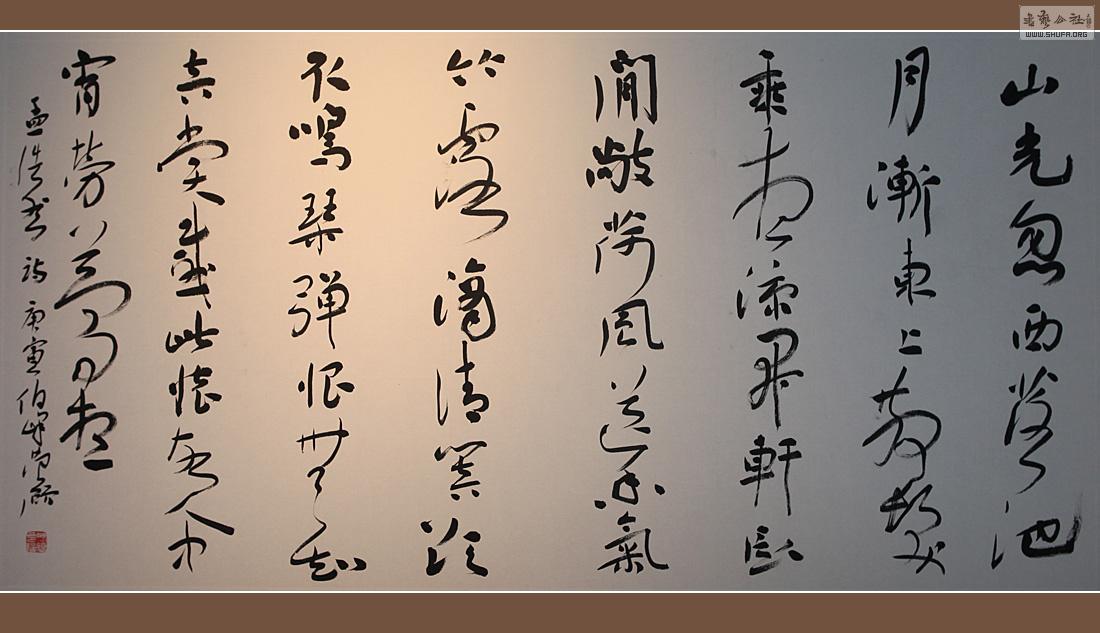 山光忽西落池
月漸東上散髮
乘夜涼開軒臥
閒敞荷風送香氣
竹露滴清響欲
取鳴琴彈恨無知
音賞感此懷故人中
宵勞夢想
孟浩然詩 庚寅伯
書藝公社
WWW.SHUFA.ORG